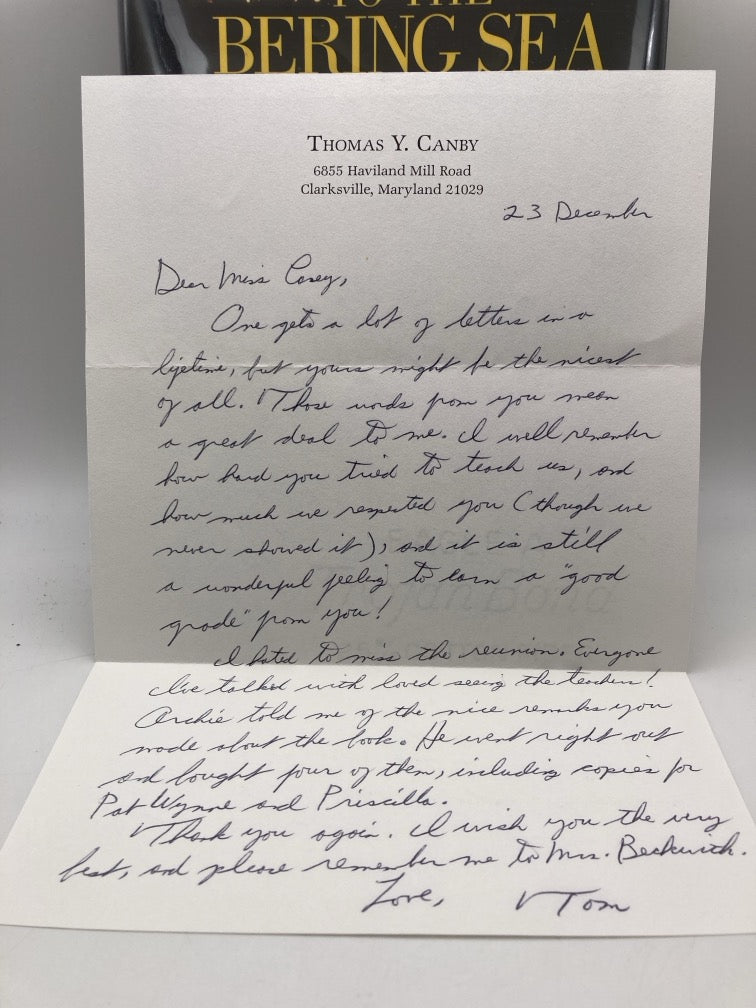 TO THE
BERING SEA
THOMAS Y. CANBY
6855 Haviland Mill Road
Clarksville, Maryland 21029
23 December
Dear Miss Casey,
One gets a lot of letters in a
lifetime, but yours might be the nicest
of all. Those words from you mean
a great deal to me. I well remember
how hard you tried to teach us, and
how much we respected you (though we
never showed it), and it is still
a wonderful feeling to earn a "good
grade" from you!
I hated to miss the reunion. Everyone
I've talked with loved seeing the teachers!
Archie told me of the nice remarks you
made about the book. He went right out
and bought four of them, including copies for
Pat Wynne and Priscilla.
Thank you again. I wish you the very
best, and please remember me to Mrs. Beckwith.
Love, Tom